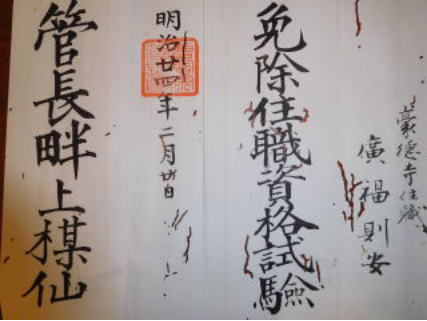 豪徳寺住職
廣福則安
免除住職資格試驗
明治廿四年二月廿日
管長畔上楳仙